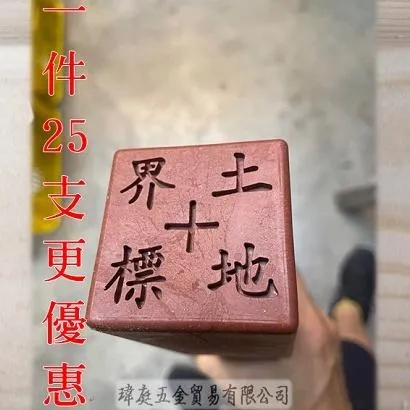 一件25支更優惠
土地
界標
瑋庭五金貿易有限公司